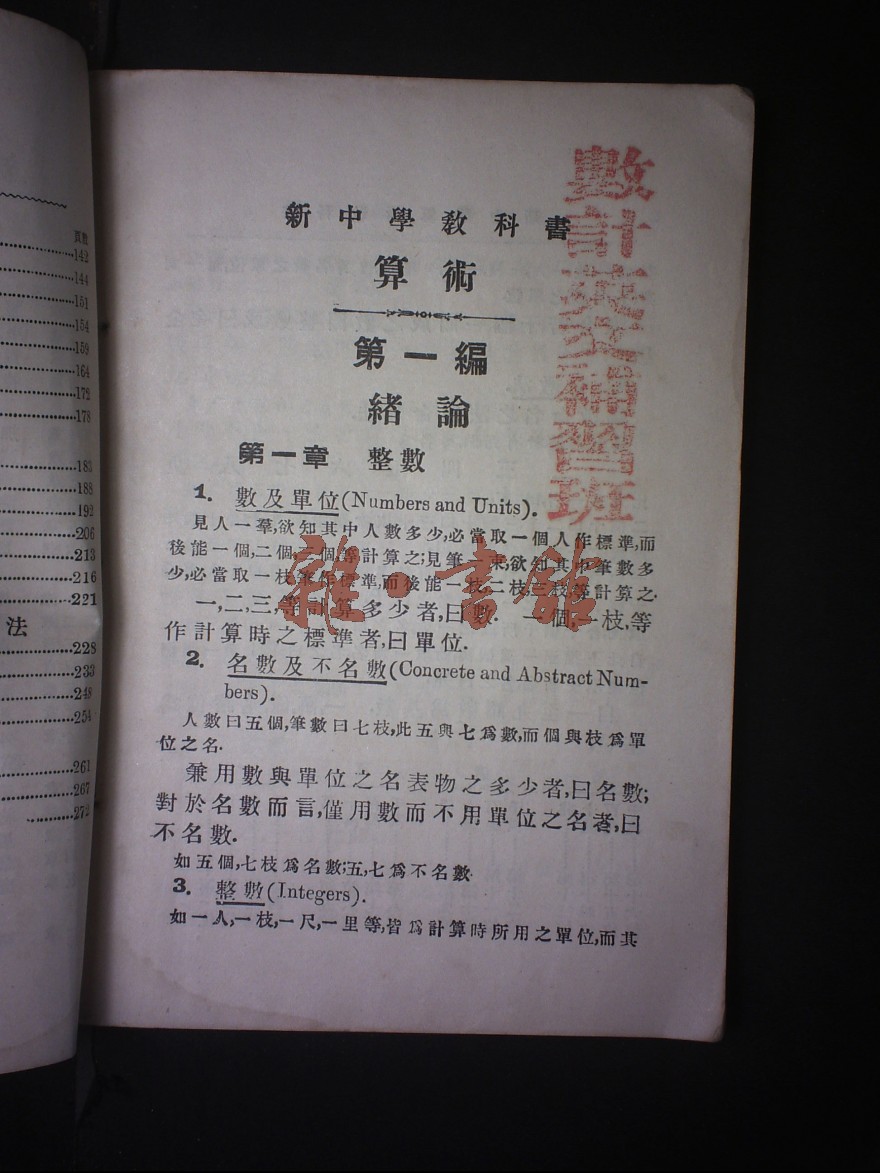 頁數
142
144
151
154
159
164
172
178
183
188
192
206
213
216
221
法
228
233
248
254
261
267
272
新中學教科書
算術
第一編
緒論
第一章 整數
1. 數及單位(Numbers and Units).
見人一羣,欲知其中人數多少,必當取一個人作標準,而
後能一個,二個,三個,等計算之;見筆一束,欲知其中筆數多
少,必當取一枝筆作標準,而後能一枝,二枝,三枝等計算之.
一,二,三,等計算多少者,曰數. 一個,一枝,等
作計算時之標準者,曰單位.
2. 名數及不名數(Concrete and Abstract Num-
bers).
人數曰五個,筆數曰七枝,此五與七爲數,而個與枝爲單
位之名.
兼用數與單位之名表物之多少者,曰名數;
對於名數而言,僅用數而不用單位之名者,曰
不名數.
如五個,七枝爲名數;五,七爲不名數.
3. 整數(Integers).
如一人,一枝,一尺,一里等,皆爲計算時所用之單位,而其
數計英文補習班
雜·書館